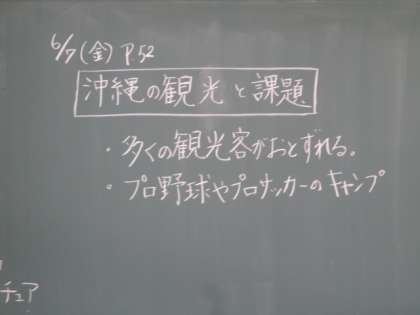 6/7(金) P.52
沖縄の観光と課題
・多くの観光客がおとずれる。
・プロ野球やプロサッカーのキャンプ
チュア